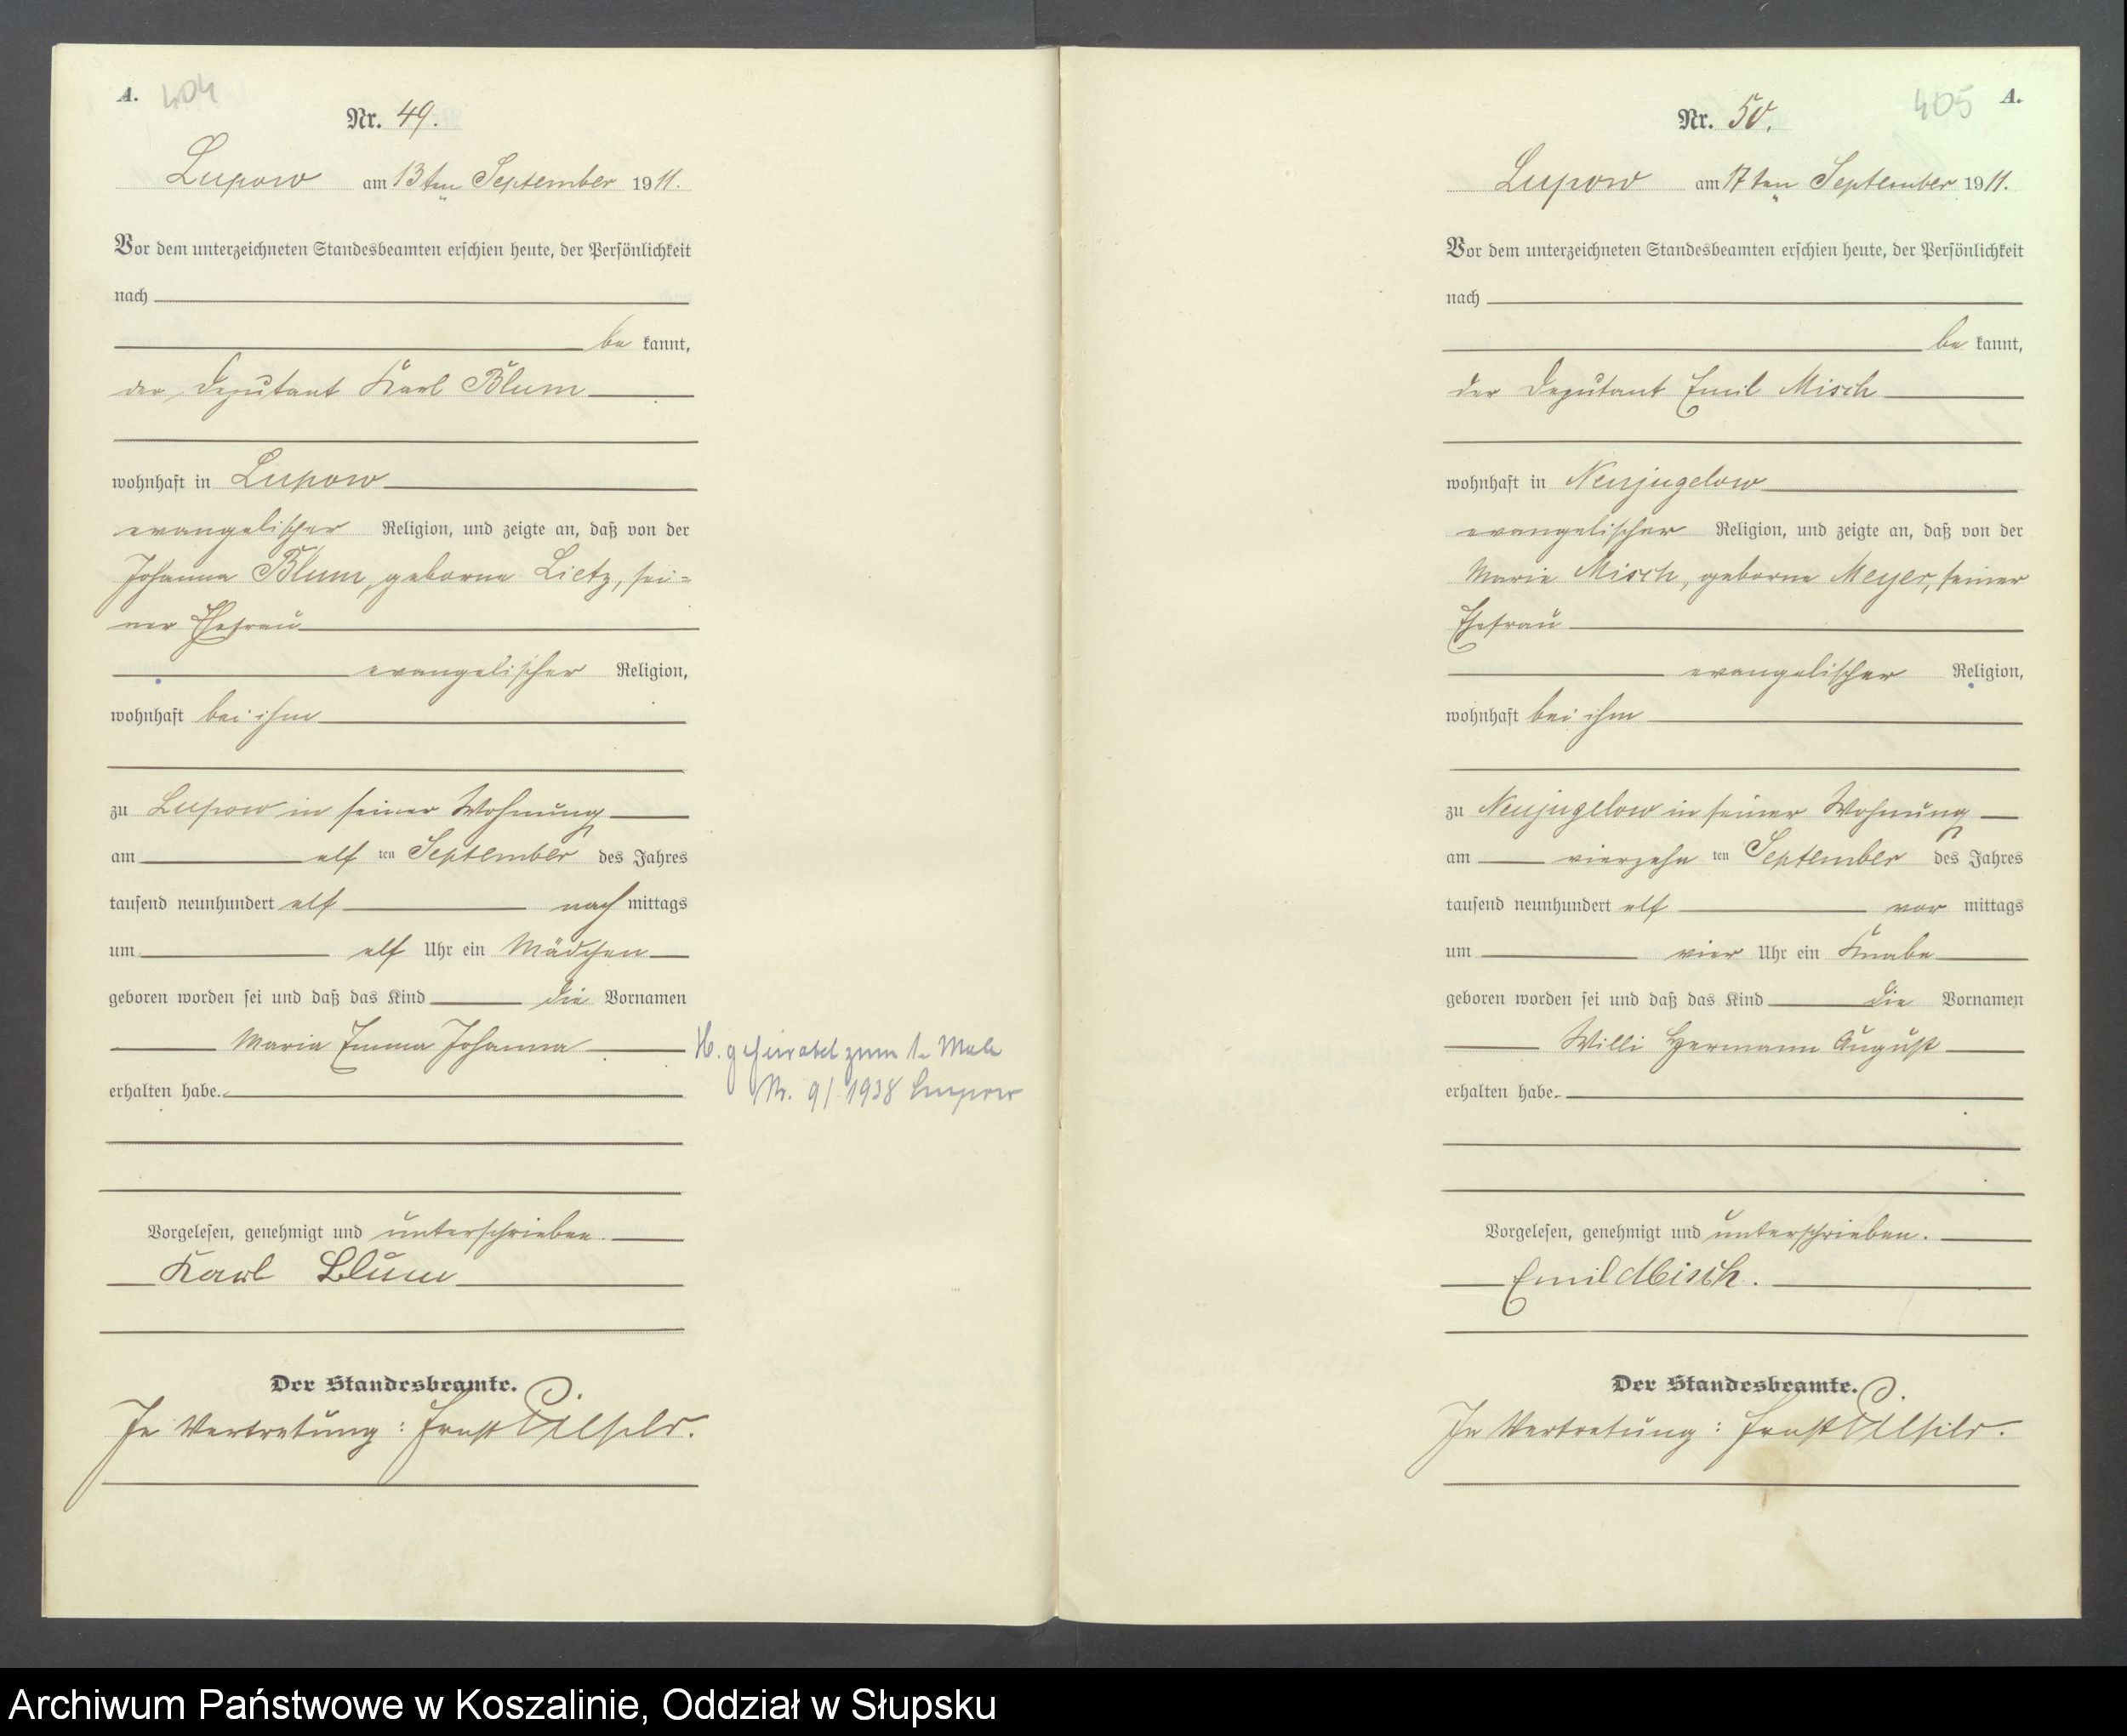 A. 404
Nr. 49.
Lupow am 13ten September 1911.
Vor dem unterzeichneten Standesbeamten erschien heute, der Persönlichkeit
nach
be kannt,
der Deputant Karl Blum
wohnhaft in Lupow
evangelischer Religion, und zeigte an, daß von der
Johanna Blum, geborne Lietz, sei=
ner Ehefrau
evangelischer Religion,
wohnhaft bei ihm
zu Lupow in seiner Wohnung
am elf ten September des Jahres
tausend neunhundert elf nach mittags
um elf Uhr ein Mädchen
geboren worden sei und daß das Kind die Vornamen
Maria Emma Johanna
erhalten habe.
Vorgelesen, genehmigt und unterschrieben.
Karl Blum
Der Standesbeamte.
In Vertretung: Ernst
H. geheiratet zum 1. Male
Nr. 9/1938 Lupow
405 A.
Nr. 50.
Lupow am 17ten September 1911.
Vor dem unterzeichneten Standesbeamten erschien heute, der Persönlichkeit
nach
be kannt,
der Deputant Emil Misch
wohnhaft in Neujugelow
evangelischer Religion, und zeigte an, daß von der
Marie Misch, geborne Meyer, seiner
Ehefrau
evangelischer Religion,
wohnhaft bei ihm
zu Neujugelow in seiner Wohnung
am vierzehn ten September des Jahres
tausend neunhundert elf vor mittags
um vier Uhr ein Knabe
geboren worden sei und daß das Kind die Vornamen
Willi Hermann August
erhalten habe.
Vorgelesen, genehmigt und unterschrieben.
Emil Misch.
Der Standesbeamte.
In Vertretung: Ernst
Archiwum Państwowe w Koszalinie, Oddział w Słupsku